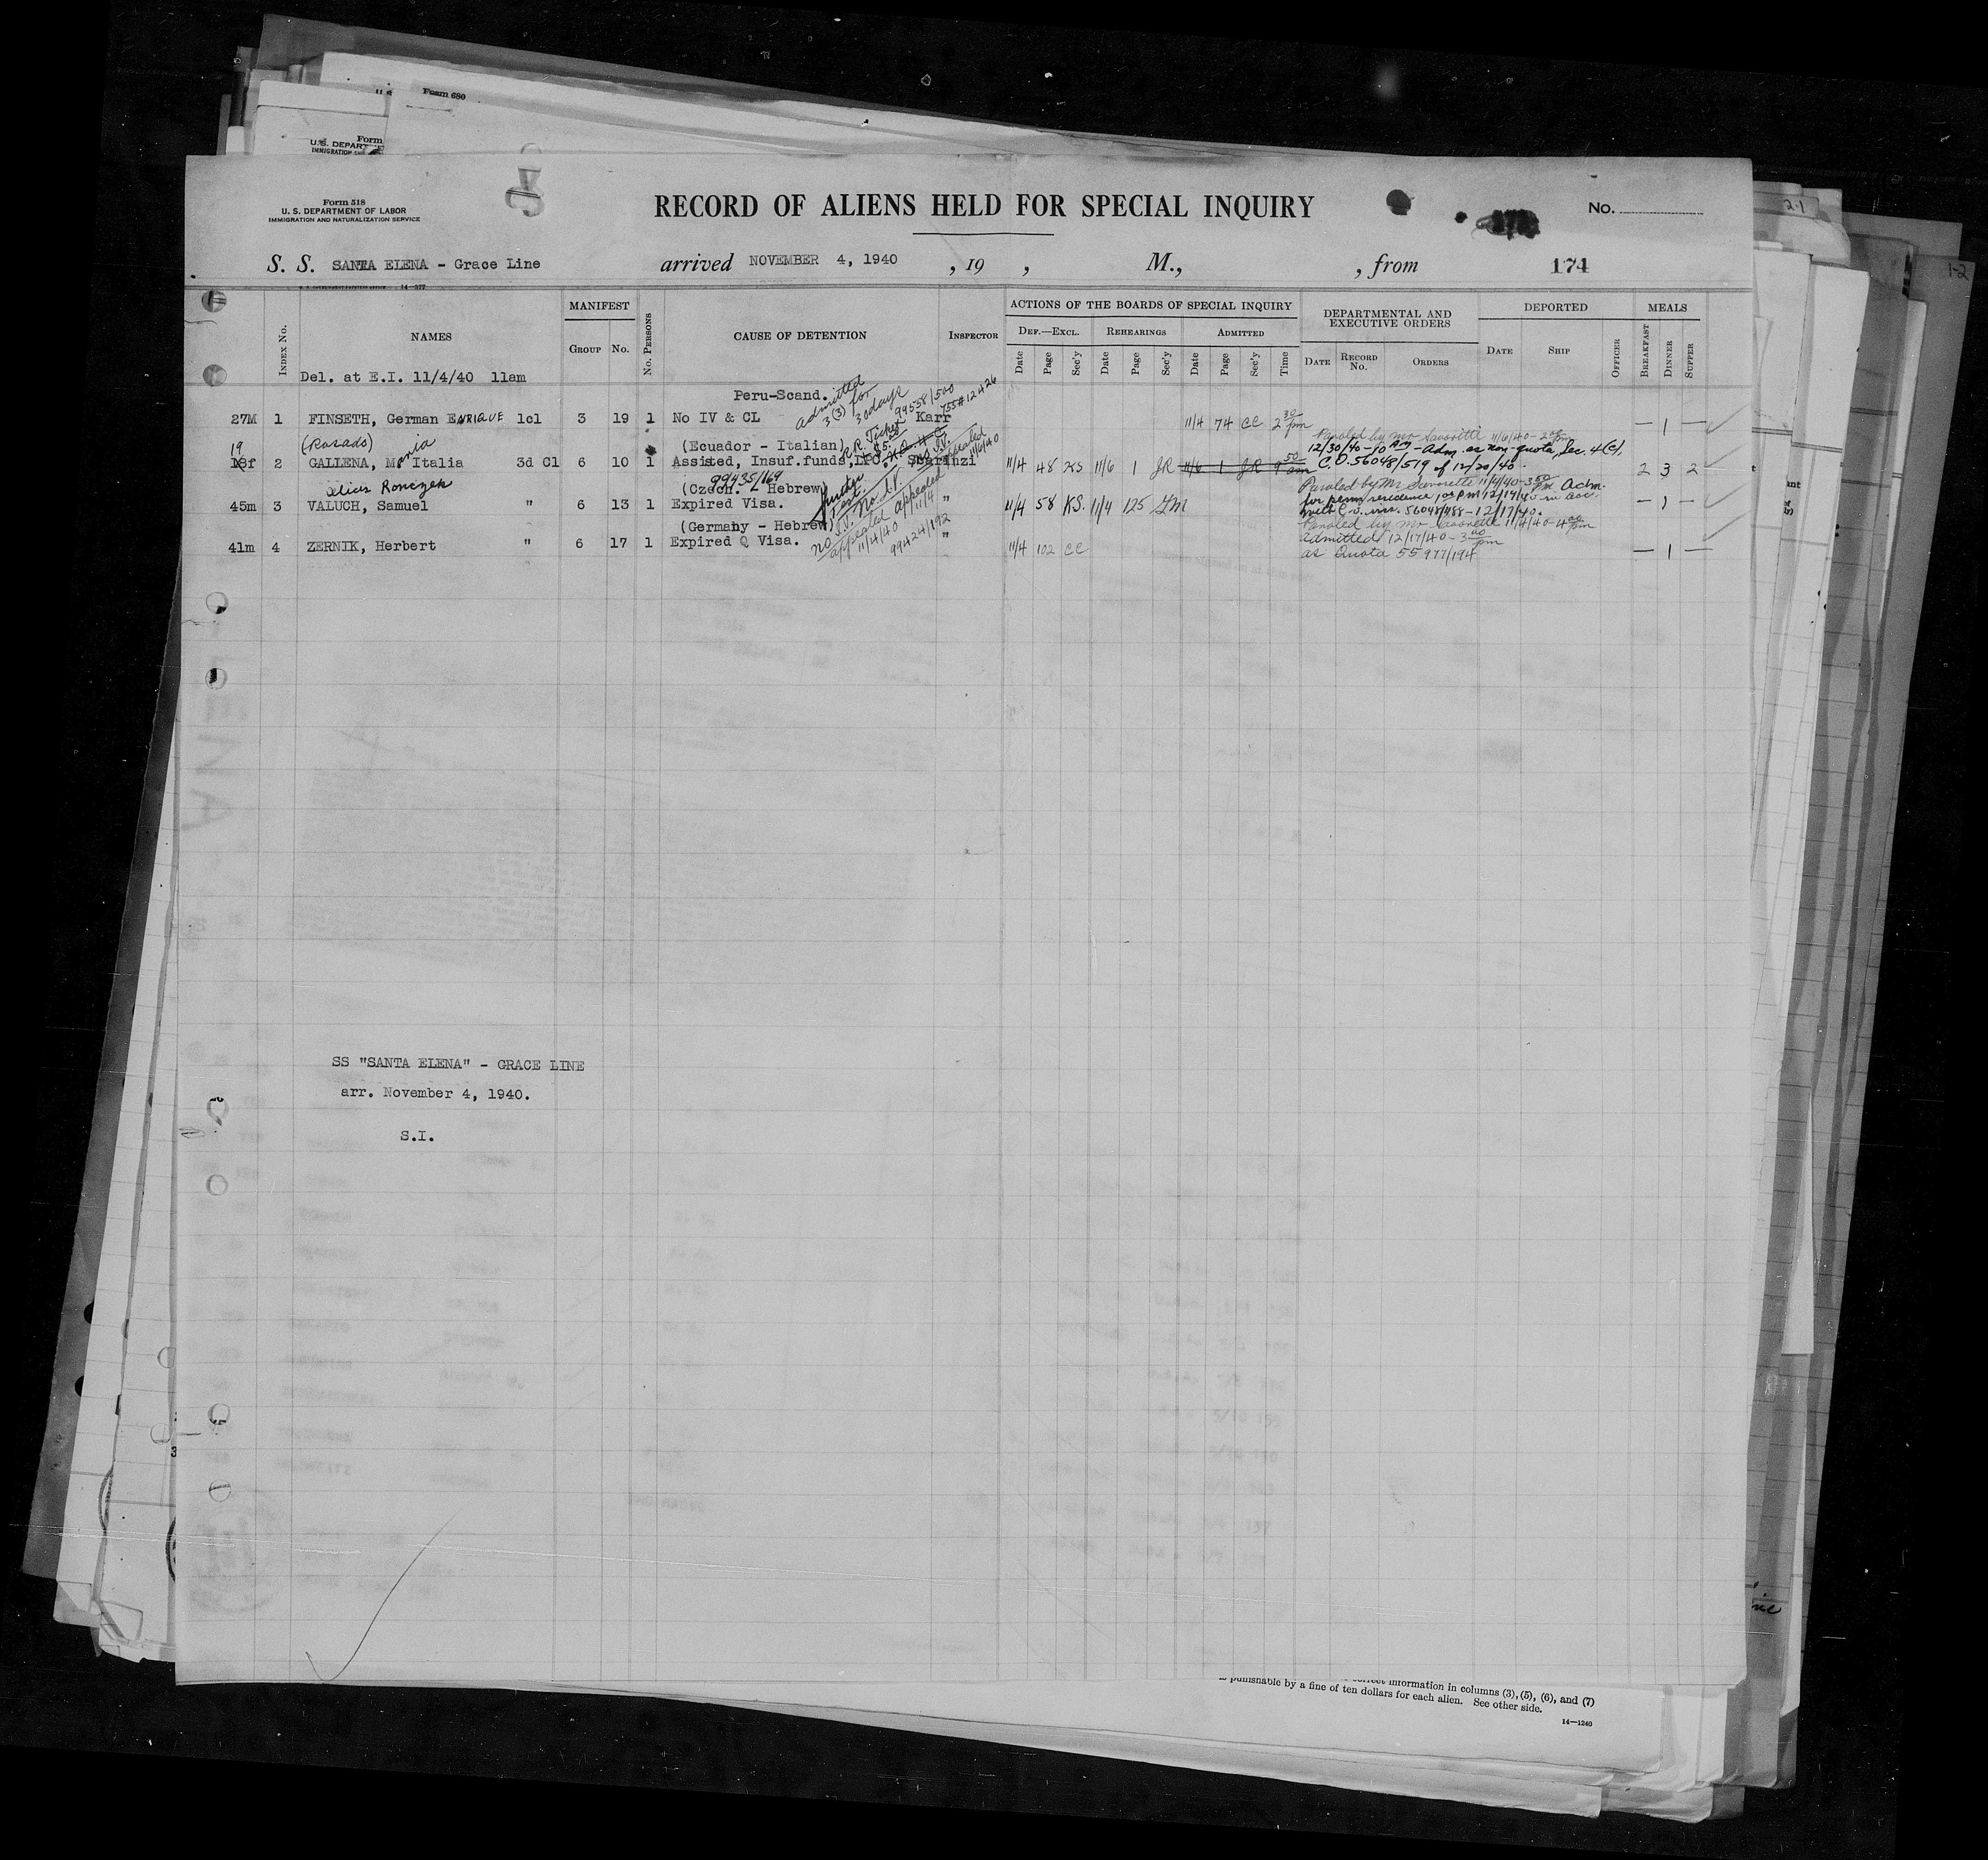 Form 680
U.S. DEPART
Form 518
U. S. DEPARTMENT OF LABOR
IMMIGRATION AND NATURALIZATION SERVICE
RECORD OF ALIENS HELD FOR SPECIAL INQUIRY
No.
S. S. SANTA ELENA - Grace Line arrived NOVEMBER 4, 1940 , 19 , M., , from 174
INDEX No.
NAMES
MANIFEST
GROUP No.
No. PERSONS
CAUSE OF DETENTION
INSPECTOR
ACTIONS OF THE BOARDS OF SPECIAL INQUIRY
DEF.—EXCL. REHEARINGS ADMITTED
Date Page Sec'y Date Page Sec'y Date Page Sec'y Time
DEPARTMENTAL AND EXECUTIVE ORDERS
DATE RECORD No. ORDERS
DEPORTED
DATE SHIP OFFICER
MEALS
BREAKFAST DINNER SUPPER
Del. at E.I. 11/4/40 11am
Peru-Scand. admitted 3(3) for 30 days
27M 1 FINSETH, German ENRIQUE 1cl 3 19 1 No IV & CL 99558/500 Karr 11/4 74 CC 2 30 pm — 1 —
19 (Rosado) (Ecuador - Italian) R.R. Ticket Paroled by Mr Savoretti 11/6/40 - 2
18f 2 GALLENA, Maria Italia 3d Cl 6 10 1 Assisted, Insuf.funds, LPC. Scarinzi no I.V. appealed 11/6/40 11/4 48 KS 11/6 1 JR 11/6 1 JR 9 50 am 12/30/40 - 10 AM - Adm. as non-quota, Sec. 4(C), C.O. 56048/519 of 12/20/40. 2 3 2
alias Ronczek 99435/169 (Czech. - Hebrew) further test.
45m 3 VALUCH, Samuel " 6 13 1 Expired Visa. no I.V. appealed 11/4 " 11/4 58 KS. 11/4 125 GM Paroled by Mr Savoretti 11/4/40 - 3 50 pm Adm. for perm residence, 12/17/40 in acc. 56048/488 - 12/17/40. — 1 —
(Germany - Hebrew) no I.V. appealed 11/4/40 99424/192 Paroled by Mr Savoretti 11/4/40 - 4 pm
41m 4 ZERNIK, Herbert " 6 17 1 Expired Q Visa. " 11/4 102 CC admitted 12/17/40 - 3 40 pm as Quota 55977/194 — 1 —
SS "SANTA ELENA" - GRACE LINE
arr. November 4, 1940.
S.I.
correct information in columns (3), (5), (6), and (7)
is punishable by a fine of ten dollars for each alien. See other side.
14—1240